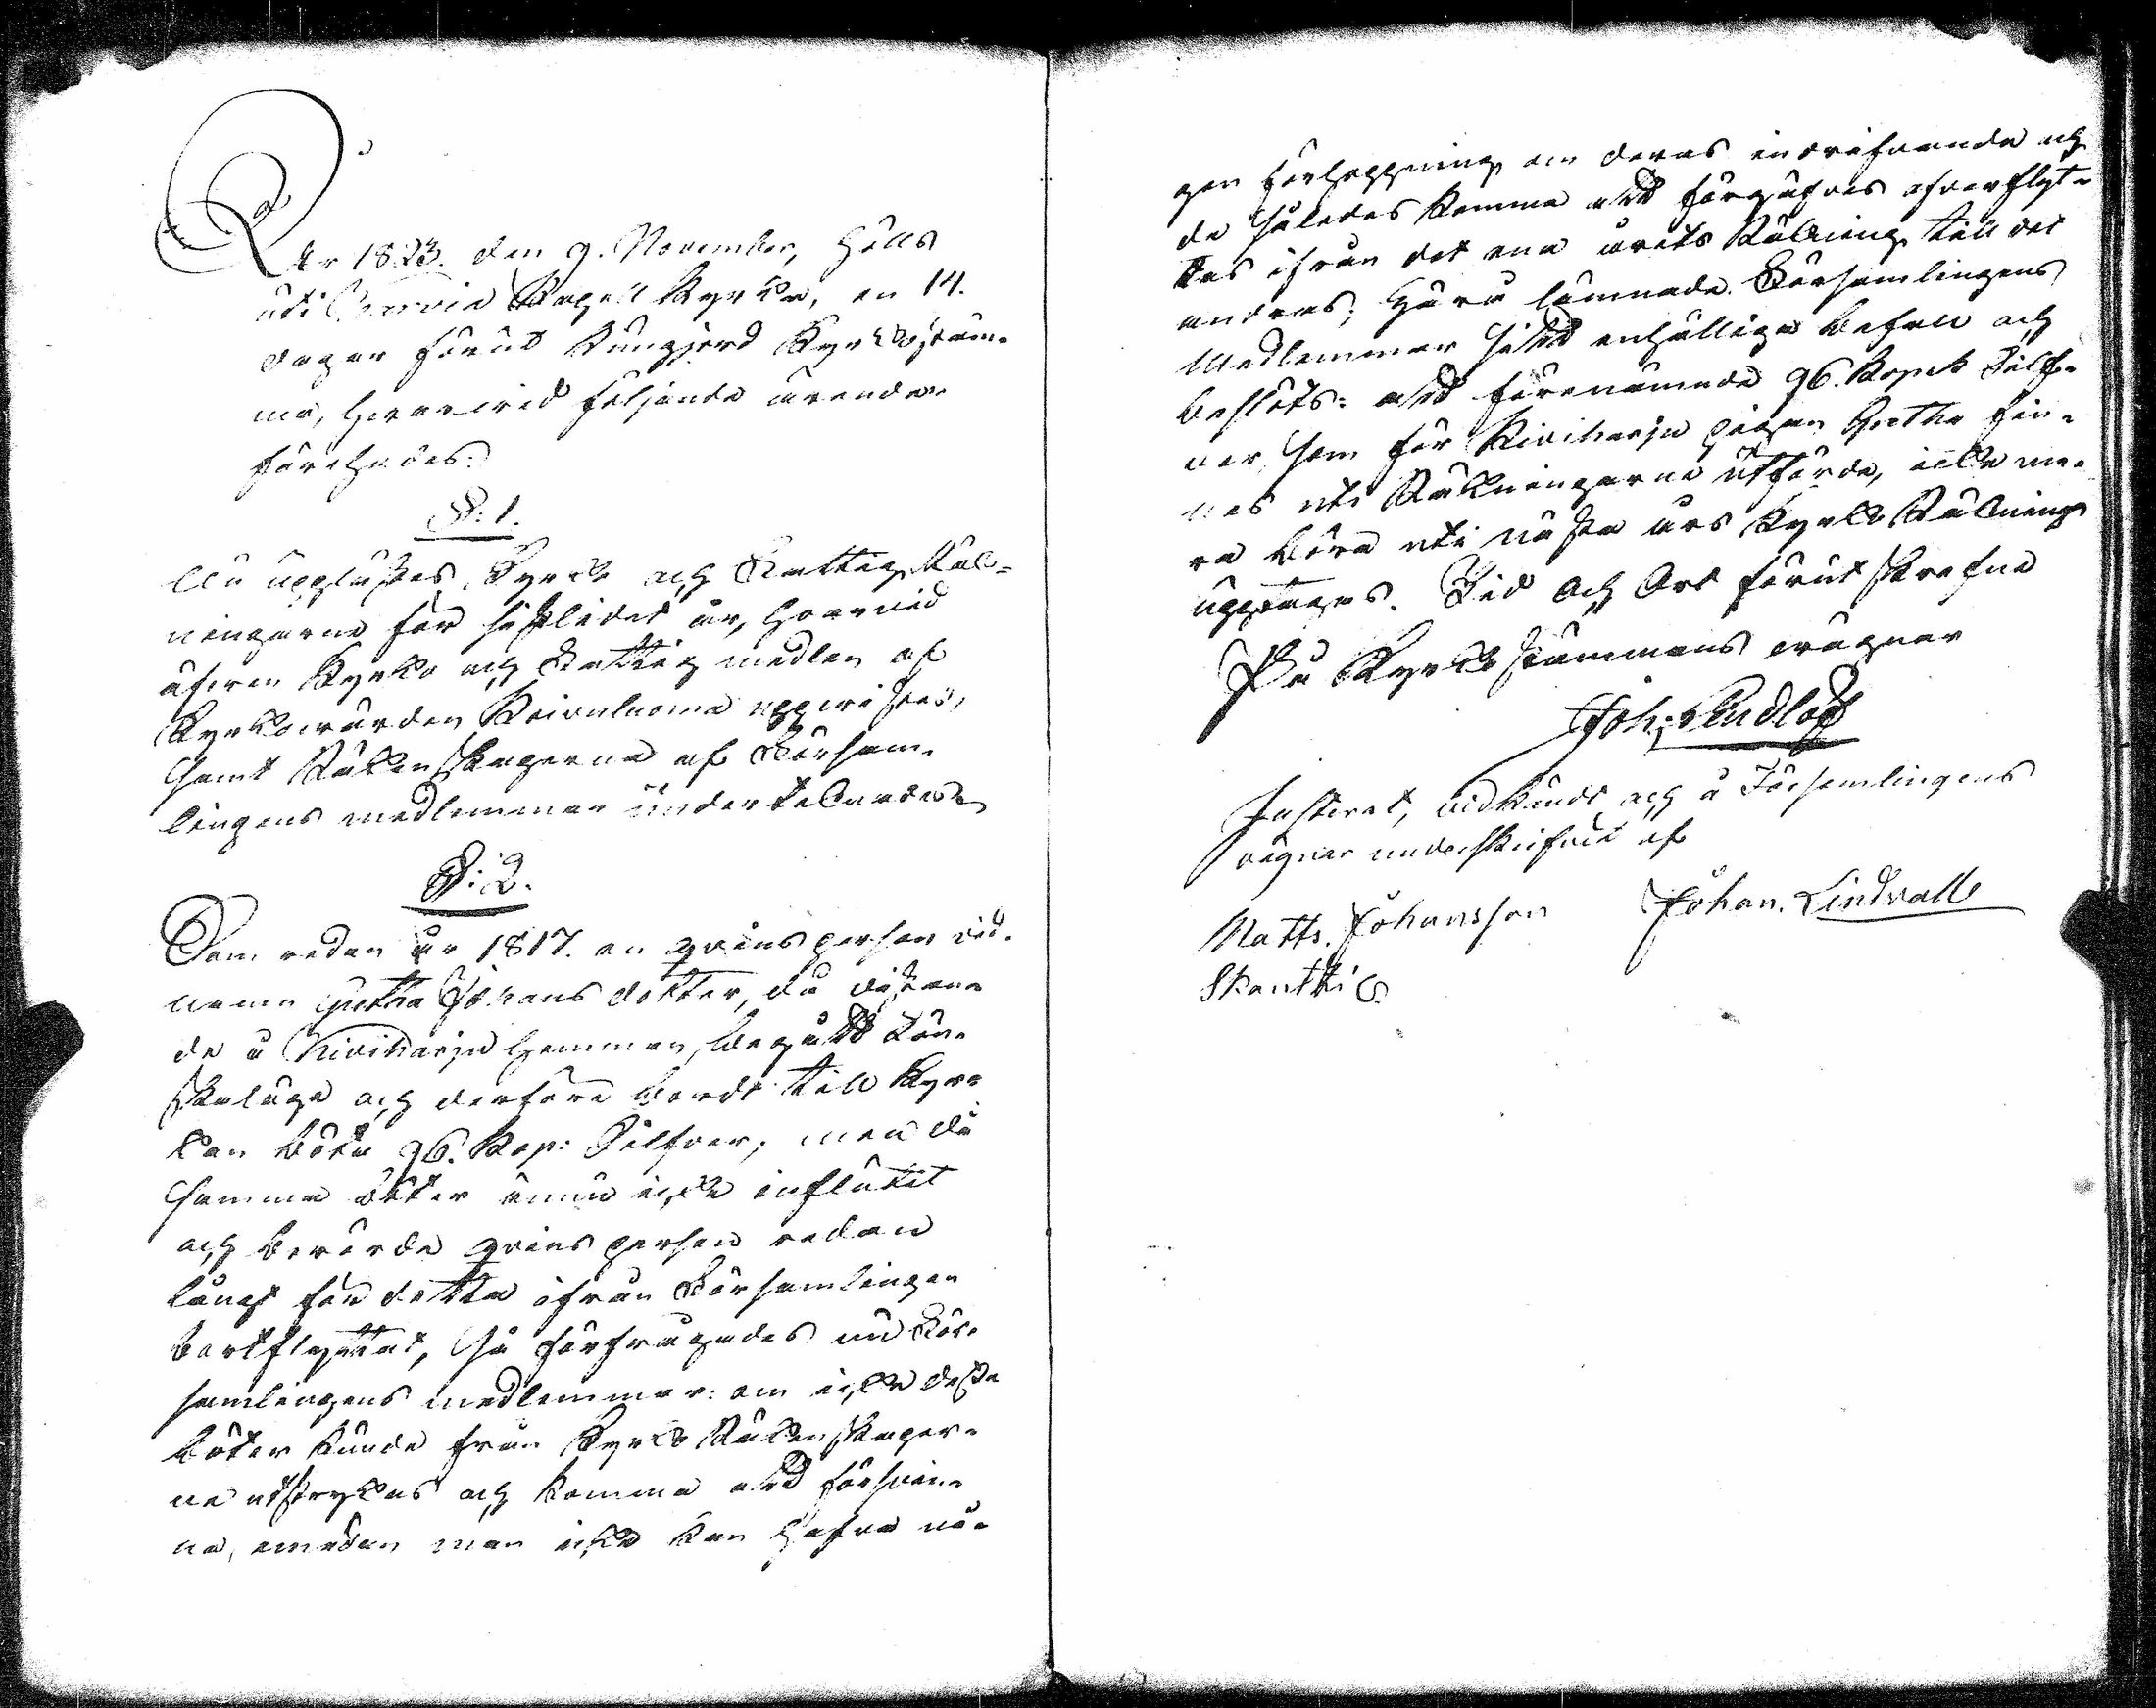 År 1823. den 9. November, hölls
uti Kapell Kyrka, en 14.
dagar förut kungjord Kyrkostäm-
ma, hvarvid följande ärender
förehades:
§: 1.
Nu upplästes Kyrko och Fattig Räk-
ningarne för sistledet år, hvarvid
äfven Kyrko och Fattig medlen af
Kyrkovärden Koivuluoma uppvistes,
samt Räkenskaperna af Försam-
lingens medlemmar undertecknades.
§: 2.
Som redan år 1817. en qvinsperson vid
namn Gretha Johansdotter, då vistan-
de å Kiviharju hemman, begått Lön-
skaläge och derföre bordt till Kyr-
kan böta 96. Kop: Silfver; men då
samma böter ännu icke influtit
och berörde qvinsperson redan
längst för detta ifrån Församlingen
bortflyttat, så förfrågades nu För-
samlingens medlemmar: om icke desse
böter kunde från Kyrko Räkenskaper-
ne utstrykas och komma att försvin-
na, emedan man icke kan hafva nå-
gon förhoppning om deras indrifvande och
de således komma att förgäfves öfverflyt-
tas ifrån det ena årets Räkning till det
andras; Häru lämnade Församlingens
Medlemmar sitt enhälliga bifall och
beslöts: att förenämnde 96. Kopek Silf-
ver, som för Kiviharju pigan Gretha fin-
nes uti Räkningarne utförde, icke me-
ra böra uti nästa års Kyrko Räkning
upptagas. Tid och Ort förut skrefne
På Kyrkostämmans vägnar
Joh: Lindlöf
Justerat, vidkändt och å Församlingens
vägnar underskrifvit af
Matts. Johansson Johan. Lindvall
Skantti